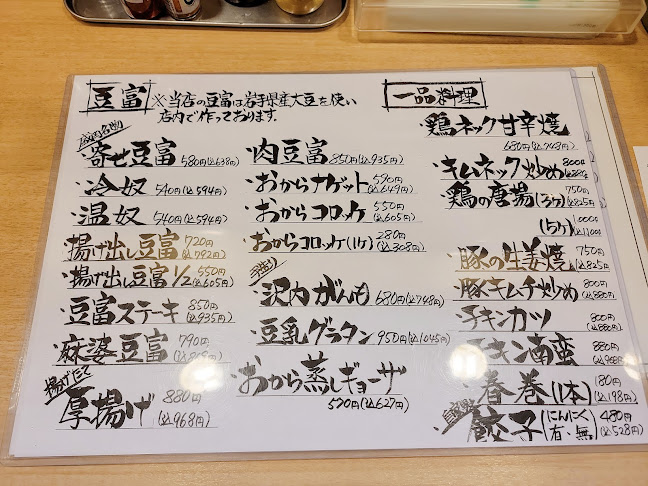 豆富
※当店の豆富は岩手県産大豆を使い
店内で作っております。
寄せ豆富 580円(込638円)
・冷奴 540円(込594円)
・温奴 540円(込594円)
揚げ出し豆富 720円(込792円)
・揚げ出し豆富1/2 550円(込605円)
・豆富ステーキ 850円(込935円)
・麻婆豆富 790円
揚げたて
厚揚げ 880円(込968円)
・肉豆富 850円(込935円)
・おからナゲット 590円(込649円)
・おからコロッケ 550円(込605円)
・おからコロッケ(1ケ) 280円(込308円)
手造り
・沢内がんも 680円(込748円)
・豆乳グラタン 950円(込1045円)
・おから蒸しギョーザ
570円(込627円)
一品料理
・鶏ネック甘辛焼
680円(込748円)
・キムネック炒め 800円
・鶏の唐揚(3ケ) 750円(込825円)
(5ケ) 1000円(込1100円)
・豚の生姜焼 750円(込825円)
・豚キムチ炒め 800円(込880円)
・チキンカツ 800円(込880円)
・チキン南蛮 880円(込968円)
・春巻(1本) 180円(込198円)
自家製
餃子(にんにく有・無) 480円(込528円)